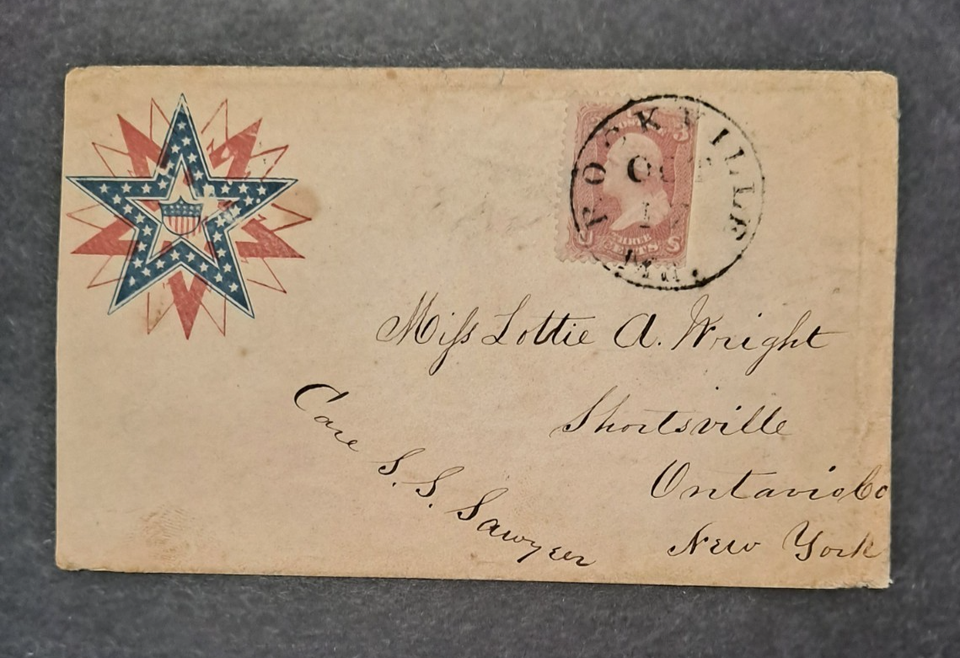 ROCKVILLE
Md.
THREE
CENTS
U S
3
Miss Lottie A. Wright
Shortsville
Ontario Co
New York
Care S. S. Sawyer